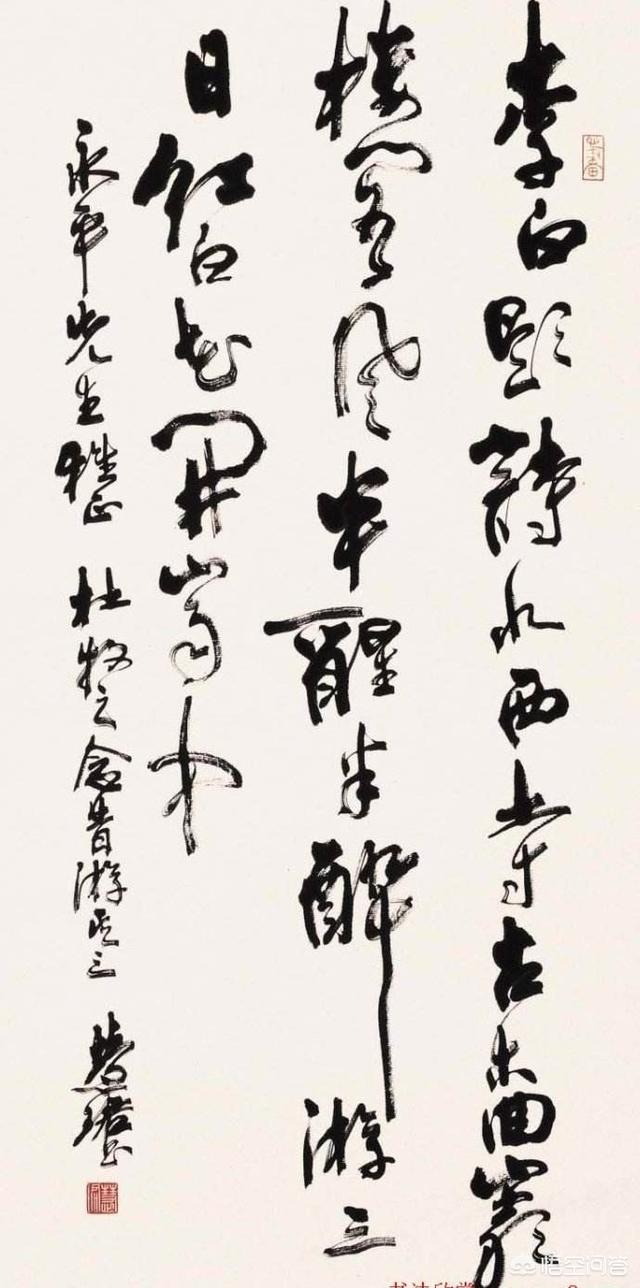 李白題詩水西寺古木回巖
樓閣風半醒半醉游三
日紅白花開山雨中
永平先生雅正 杜牧之念昔游其三 慧珺书
悟空问答